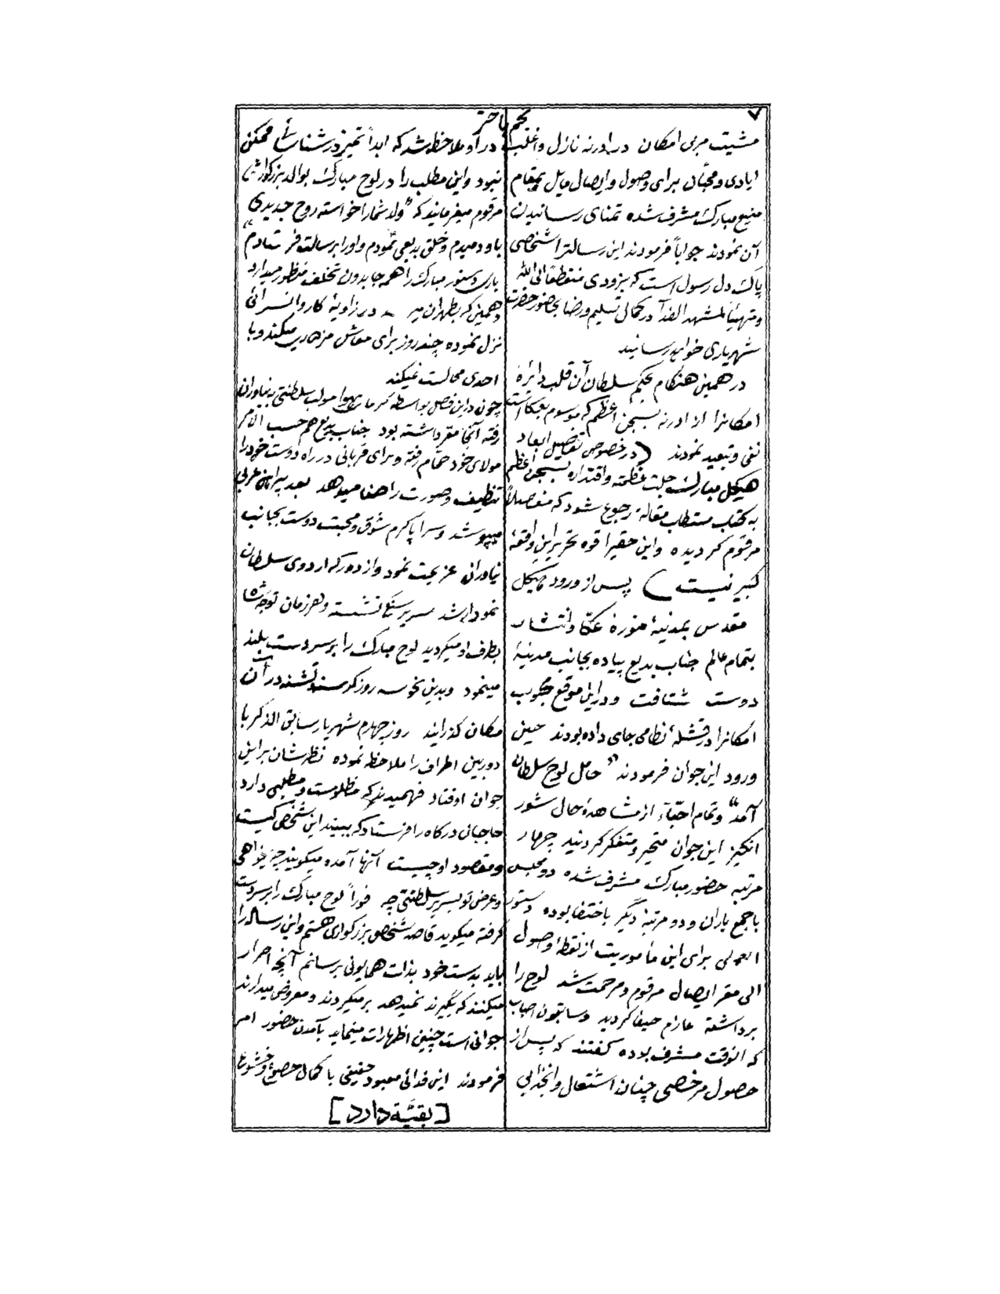 ۷
نجم باختر
مشیت مربی امکان در ادرنه نازل و اغلب
ایادی و محبان برای وصول و ایصال مایل بمقام
منیع مبارک مشرف شده تمنای رسانیدن
آن نمودند جواباً فرمودند این رسالترا شخصی
پاک دل رسول است که بزودی منقطعاً الی الله
و متهیئاً لمشهد الفدآ در کمال تسلیم و رضا بحضور حضرت
شهریاری خواهد رسانید
در همین هنگام بحکم سلطان آن قلب دائرهٔ
امکانرا از ادرنه بسجن اعظم که موسوم بعکا است
نفی و تبعید نمودند (در خصوص تفصیل ابعاد
هیکل مبارک جلت عظمته و اقتداره بسجن اعظم
به کتاب مستطاب مقاله رجوع شود که مفصلاً
مرقوم گردیده و این حقیر را قوه تحریر این واقعهٔ
کبیر نیست) پس از ورود هیکل
مقدس بمدینهٔ منورهٔ عکا و انتشار
بتمام عالم جناب بدیع پیاده بجانب مدینهٔ
دوست شتافت و در این موقع محبوب
امکانرا در قشلهٔ نظامی جای داده بودند حین
ورود این جوان فرمودند "حامل لوح سلطان
آمد" و تمام احبّاء از مشاهدهٔ حال شور
انگیز این جوان متحیر و متفکر گردیدند چهار
مرتبه حضور مبارک مشرف شده دو مجلس
با جمع یاران و دو مرتبهٔ دیگر باختفا بوده دستور
العملی برای این ماموریت از نقطهٔ وصول
الی مقر ایصال مرقوم و مرحمت شد لوح را
برداشته عازم حیفا گردید و سابقون احباب
که آنوقت مشرف بوده گفتند که پس از
حصول مرخصی چنان اشتعال و انجذابی
در او ملاحظه شد که ابداً تمیز در شناسائی ممکن
نبود و این مطلب را در لوح مبارک بوالد بزرگوارش
مرقوم میفرمایند که "ولد شما را خواسته روح جدیدی
باو دمیدم و خلق بدیعی نمودم و او را برسالت فرستادم"
باری دستور مبارک را همه جا بدون تخلف منظور میدارد
و همین که بطهران میرسد در زاویهٔ کاروانسرائی
نزل نموده چند روز برای معاش مزدوری میکند و با
احدی مجالست نمیکند
چون در این فصل بواسطه گرمای هوا موکب سلطنتی به نیاوران
رفته آنجا مقر داشته بود جناب بدیع هم حسب الامر
مولای خود حمّام رفته و برای قربانی در راه دوست خود را
تنظیف و صورت را صفا میدهد بعد پیراهن عربی
میپوشد و سراپا گرم شوق و محبت دوست بجانب
نیاوران عزیمت نمود و از دور که اردوی سلطان
نمودار شد سر سنگی نشسته و هر زمان توجّه شاه
بطرف او میگردید لوح مبارک را بر سر دست بلند
مینمود و بدین نحو سه روز گرسنه و تشنه در آن
مکان گذرانید روز چهارم شهریار سابق الذکر با
دوربین اطراف را ملاحظه نموده نظرشان بر این
جوان اوفتاد فهمیدند که مظلومست و مطلبی دارد
حاجبان درگاه را فرستاد که ببینید این شخص کیست
و مقصود او چیست آنها آمده میگویند چه خواهی
و عرض تو بسریر سلطنتی چه فوراً لوح مبارک را بر سر دست
گرفته میگوید قاصد شخص بزرگواری هستم و این رساله را
باید بدست خود بذات همایونی برسانم آنچه اصرار
میکنند که بگیرند نمیدهد بر میگردند و معروض میدارند
جوانی است چنین اظهارات مینماید بآمدن حضور امر
فرمودند این فدائی معبود حقیقی با کمال خضوع و خشوع
[بقیّه دارد]